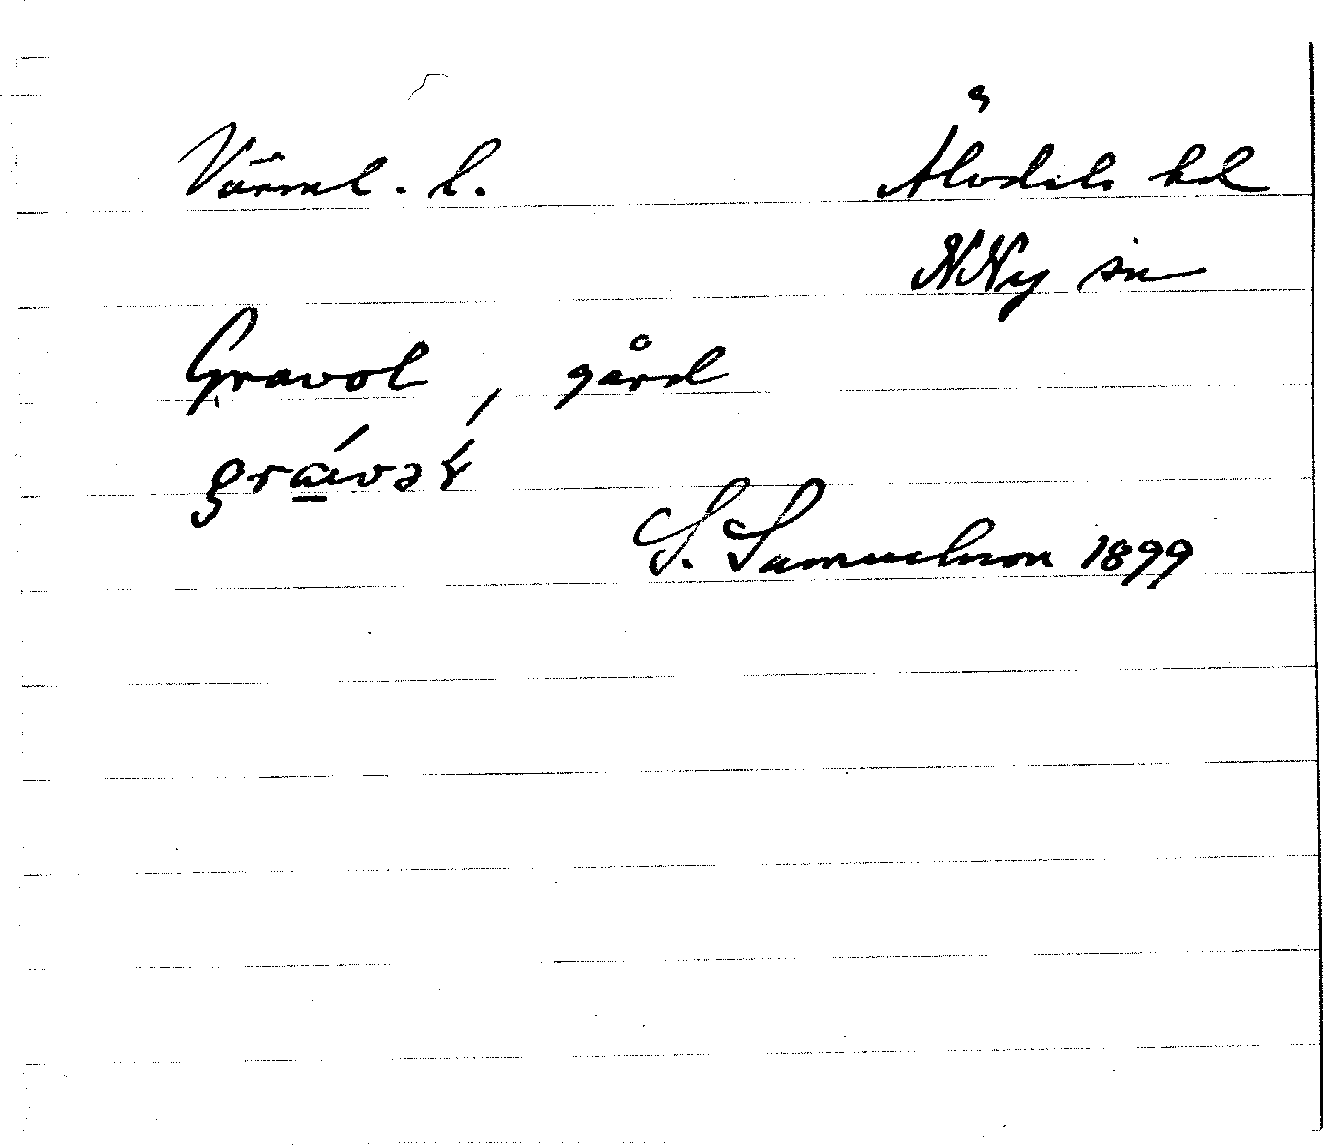 Värml. l. Älvdals hd
N Ny sn
Gravol, gård
S. Samuelsson 1899